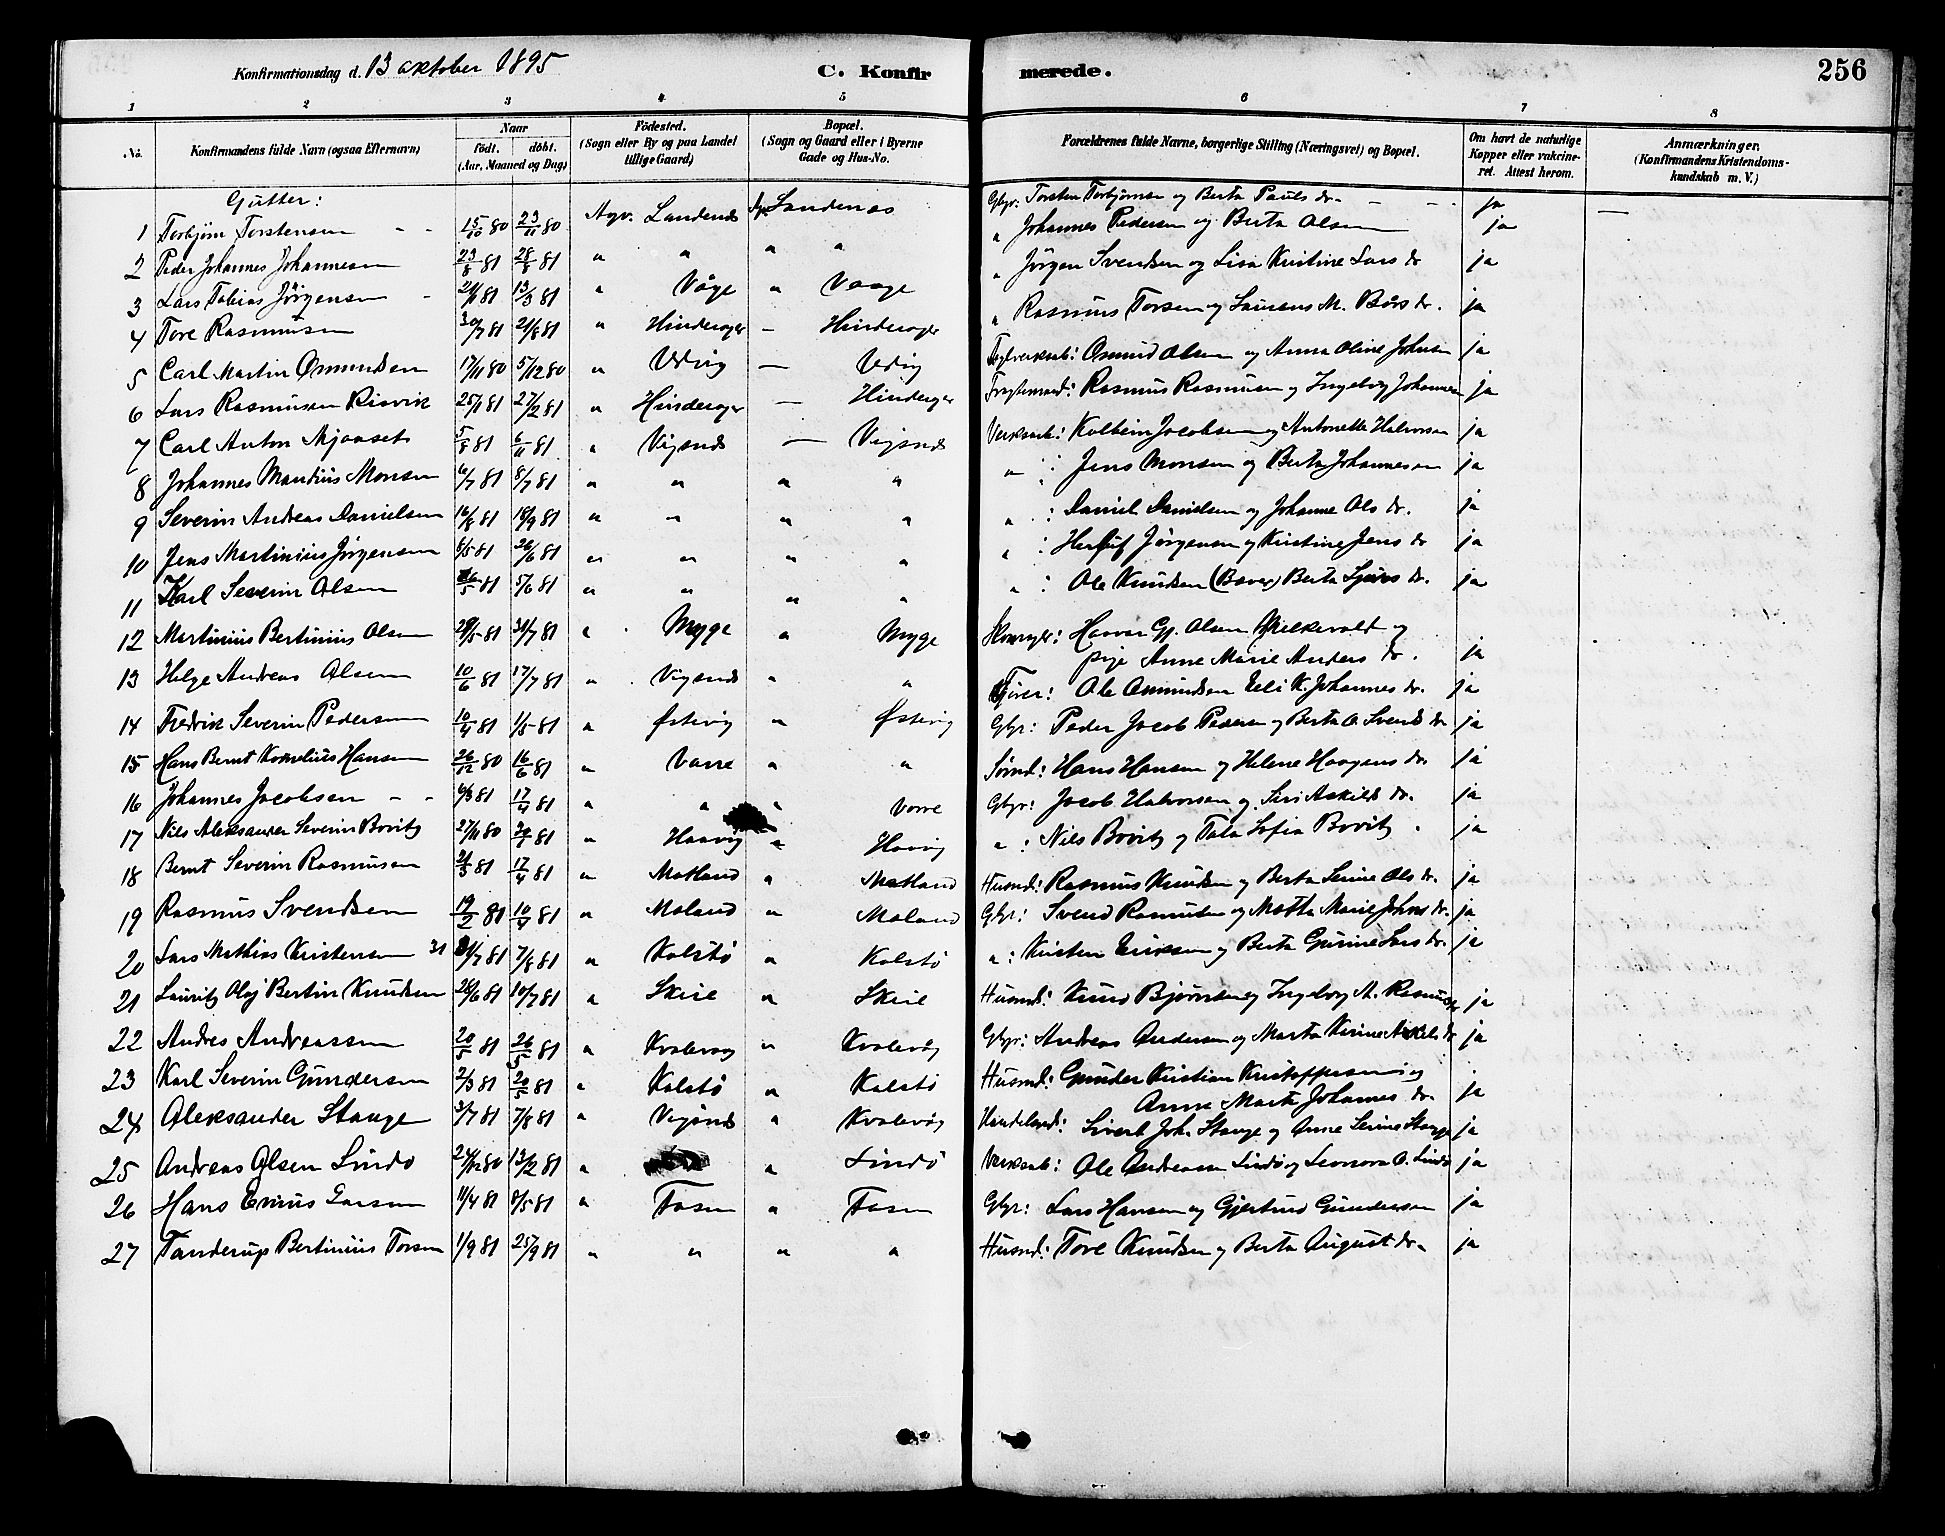 Konfirmationsdag d. 13 oktober 1895 C. Konfirmerede. 256
1 2 3 4 5 6 7 8
No. Konfirmandens fulde Navn (ogsaa Efternavn) Naar født. døbt. (Aar, Maaned og Dag) Fødested. (Sogn eller By og paa Landet tillige Gaard) Bopæl. (Sogn og Gaard eller i Byerne Gade og Hus-No. Forældrenes fulde Navne, borgerlige Stilling (Næringsvei) og Bopæl. Om havt de naturlige Kopper eller vakcineret. Attest herom. Anmærkninger. (Konfirmandens Kristendomskundskab m. V.)
Gutter:
1 Torbjørn Torstensen 15/10 80 23/11 80 Agv. Sandenæs Agv. Sandenæs Gbgr: Torsten Torbjørnsen og Berta Pauls dr. ja
2 Peder Johannes Johannesen 23/8 81 28/8 81 " " " " " Johannes Pedersen og Berta Olsen ja
3 Lars Tobias Jørgensen 13/3 81 " Våge " Vaage " Jørgen Svendsen og Lisa Kristine Lars dr ja
4 Tore Rasmussen 30/7 81 21/8 81 " Hinderager — Hinderager " Rasmus Torsen og Laurens M. Bårs dr. ja
5 Carl Martin Osmundsen 17/11 80 5/12 80 " Vdvig — Vdvig Osmund Olsen og Anna Oline Johnsen ja
6 Lars Rasmusen Risvik 25/1 81 27/2 81 " Hinderager — Hinderager Rasmus Rasmusen og Ingeborg Johannesen ja
7 Carl Anton Mjaaset 5/8 81 6/11 81 " Vigsnæs — Vigsnæs Verksarb: Kolbein Jacobsen og Antonette Halvorsen ja
8 Johannes Mandius Monsen 6/7 81 8/7 81 " " " " " : Jens Monsen og Berta Johannesen ja
9 Severin Andreas Danielsen 16/8 81 18/9 81 " " " " " : Daniel Danielsen og Johanne Ols dr. ja
10 Jens Martinius Jørgensen 8/5 81 26/6 81 " " " " " : Jørgensen og Kristine Jens dr ja
11 Karl Severin Olsen 5/6 81 " " " " " : Ole Knudsen (Bøver) Berta Sjurs dr. ja
12 Martinius Bertinius Olsen 29/5 81 31/7 81 " Myge " Myge Haavar Gj. Olsen og
pige Anne Marie Anders dr. ja
13 Helge Andreas Olsen 10/6 81 17/7 81 " Vigsnæs " " Ole Osmundsen Eli K. Johannes dr. ja
14 Fredrik Severin Pedersen 10/4 81 1/5 81 " Østevig " Østevig Gbgr: Peder Jacob Pedersen og Berta O. Svends dr ja
15 Hans Bernt Kornelius Hansen 26/12 80 16/6 81 " Vorre " " Hans Hansen og Helene Haagens dr ja
16 Johannes Jacobsen 17/4 81 " " " Vorre Gbgr: Jacob Halvorsen og Siri Askilds dr. ja
17 Nils Aleksander Severin Bovitz 27/11 80 30/1 81 " Haavig " Haavig " : Nils Bovitz og Tala Sofia Bovitz ja
18 Bernt Severin Rasmusen 21/3 81 17/4 81 " Matland " Matland Husmd: Rasmus Knudsen og Berta Serine Ols dr. ja
19 Rasmus Svendsen 19/2 81 10/4 81 " Moland " Moland Gbgr: Svend Rasmusen og Martha Marie Johns dr. ja
20 Lars Mathias Kristensen 31 31/7 81 7/8 81 " Kolstø " Kolstø " : Kristen Eriksen og Berta Gurine Lars dr. ja
21 Lauritz Olaj Bertin Knudsen 28/6 81 10/7 81 " Skeie " Skeie Husmd: Knud Bjørnsen og Ingeborg A. Rasmus dr ja
22 Andres Andreassen 20/5 81 26/5 81 " Kvalevåg " Kvalevåg Gbgr: Andreas Andersen og Marta Karine Askils dr ja
23 Karl Severin Gundersen 2/3 81 20/5 81 " Kolstø " Kolstø Husmd: Gunder Kristian Kristoffersen og
Anne Marta Johannes dr. ja
24 Aleksander Stange 3/7 81 7/8 81 " Vigsnæs " Kvalevåg Handelsmd: Sivert Joh. Stange og Anne Serine Stange ja
25 Andreas Olsen Lindø 24/10 80 13/2 81 " " Lindø Verksarb: Ole Andreasen Lindø og Leonora O. Lindø ja
26 Hans Enius Larsen 11/4 81 8/5 81 " Fosen " Fosen Gbgr: Lars Hansen og Gjertrud Gundersen ja
27 Tanderup Bertinius Torsen 1/9 81 25/9 81 " " " " Husmd: Tore Knudsen og Berta August dr. ja